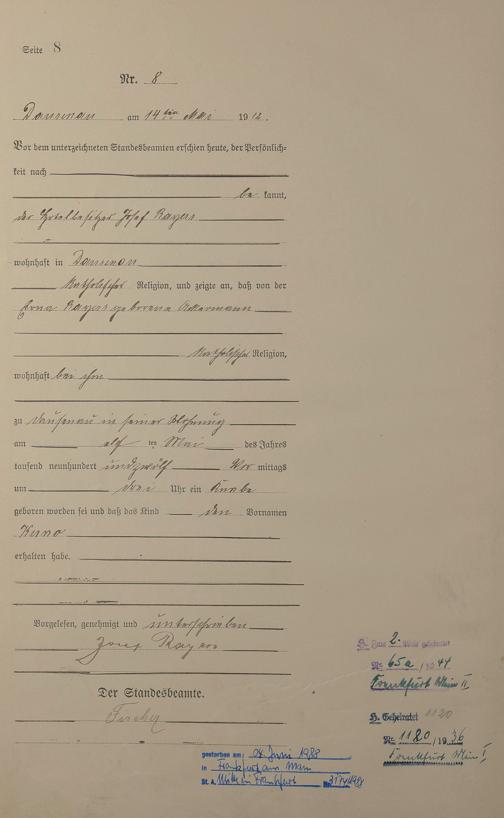 Seite 8
Nr. 8
Dausenau am 14ten Mai 1912.
Vor dem unterzeichneten Standesbeamten erschien heute, der Persönlich-
keit nach
be kannt,
der Hotelbesitzer Josef
wohnhaft in Dausenau
katholischer Religion, und zeigte an, daß von der
geborene Ackermann
katholischer Religion,
wohnhaft bei ihm
zu Dausenau in seiner Wohnung
am elf ten Mai des Jahres
tausend neunhundert und zwölf Vor mittags
um drei Uhr ein Knabe
geboren worden sei und daß das Kind den Vornamen
Kuno
erhalten habe.
Vorgelesen, genehmigt und unterschrieben
Josef
Der Standesbeamte.
2.
Nr. 65a /1941
Frankfurt Main II
H. Geheiratet 1120
Nr. 1120 /1936
Frankfurt Main I
gestorben am: 04. Juni 1988
in Frankfurt am Main
St. A. Mitte in Frankfurt Nr.